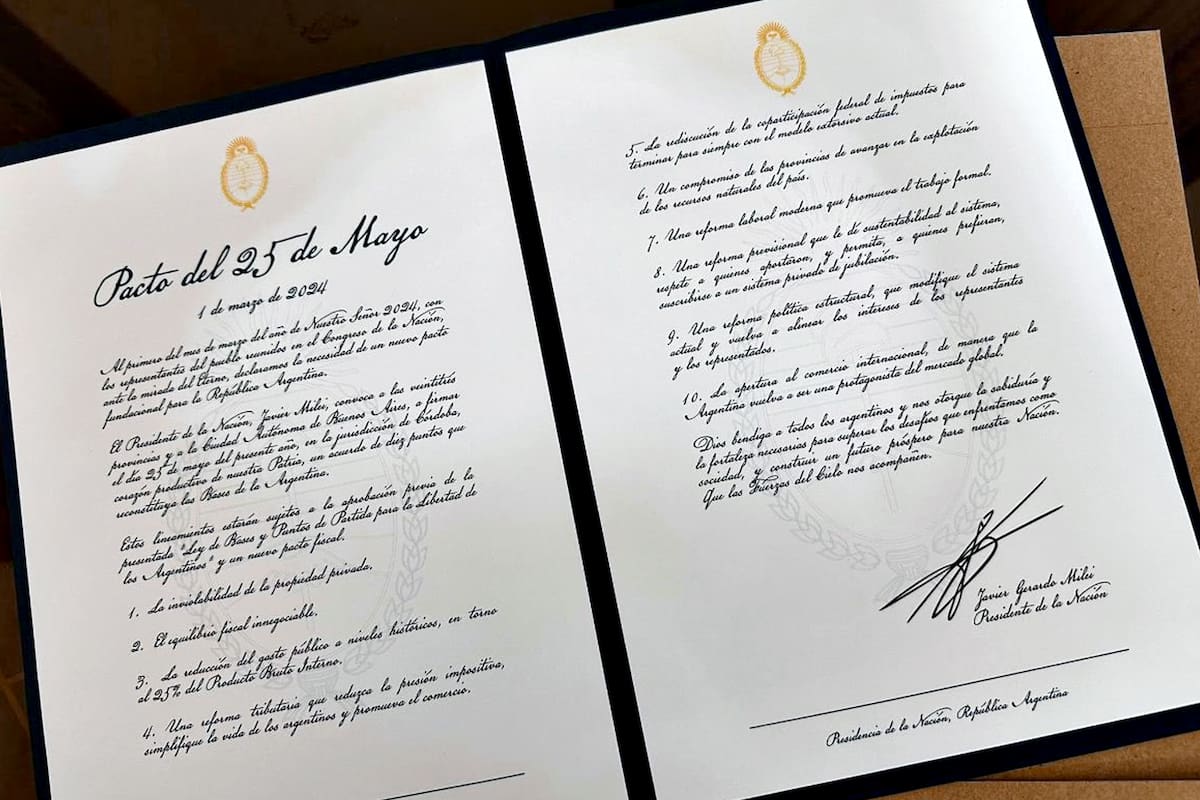 Pacto del 25 de Mayo
1 de marzo de 2024
Al primero del mes de marzo del año de Nuestro Señor 2024, con
los representantes del pueblo reunidos en el Congreso de la Nación,
ante la mirada del Eterno, declaramos la necesidad de un nuevo pacto
fundacional para la República Argentina.
El Presidente de la Nación, Javier Milei, convoca a las veintitrés
provincias y a la Ciudad Autónoma de Buenos Aires, a firmar
el día 25 de mayo del presente año, en la jurisdicción de Córdoba,
corazón productivo de nuestra Patria, un acuerdo de diez puntos que
reconstituya las Bases de la Argentina.
Estos lineamientos estarán sujetos a la aprobación previa de la
presentada "Ley de Bases y Puntos de Partida para la Libertad de
los Argentinos" y un nuevo pacto fiscal.
1. La inviolabilidad de la propiedad privada.
2. El equilibrio fiscal innegociable.
3. La reducción del gasto público a niveles históricos, en torno
al 25% del Producto Bruto Interno.
4. Una reforma tributaria que reduzca la presión impositiva,
simplifique la vida de los argentinos y promueva el comercio.
5. La rediscución de la coparticipación federal de impuestos para
terminar para siempre con el modelo extorsivo actual.
6. Un compromiso de las provincias de avanzar en la explotación
de los recursos naturales del país.
7. Una reforma laboral moderna que promueva el trabajo formal.
8. Una reforma previsional que le dé sustentabilidad al sistema,
respete a quienes aportaron, y permita, a quienes prefieran,
suscribirse a un sistema privado de jubilación.
9. Una reforma política estructural, que modifique el sistema
actual y vuelva a alinear los intereses de los representantes
y los representados.
10. La apertura al comercio internacional, de manera que la
Argentina vuelva a ser una protagonista del mercado global.
Dios bendiga a todos los argentinos y nos otorgue la sabiduría y
la fortaleza necesarias para superar los desafíos que enfrentamos como
sociedad, y construir un futuro próspero para nuestra Nación.
Que las Fuerzas del Cielo nos acompañen.
Javier Gerardo Milei
Presidente de la Nación
Presidencia de la Nación, República Argentina